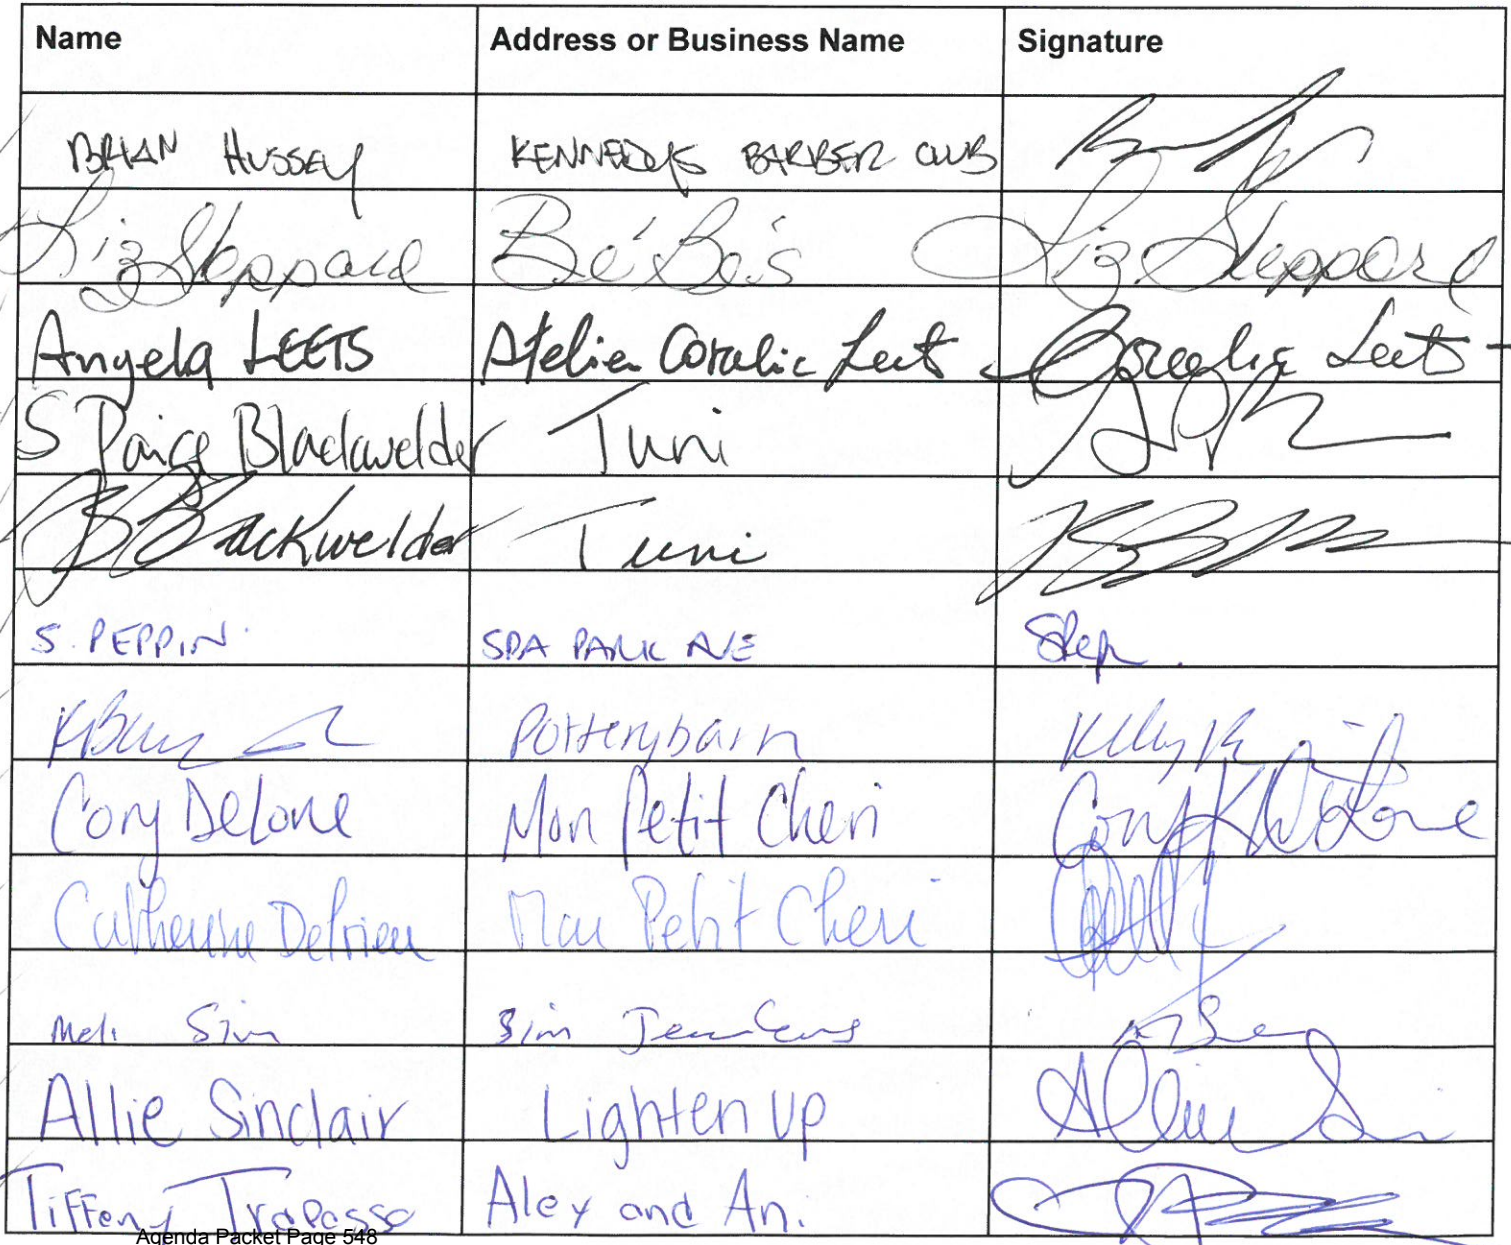 Name Address or Business Name Signature
BRIAN HUSSEY KENNEDYS BARBER CLUB
Liz Sheppard Bé Be's Liz Sheppard
Angela LEETS Atelier Coralie Leets
S Paige Blackwelder Tuni
B Blackwelder Tuni
S. PEPPIN. SPA PARK AVE Step.
Potterybarn
Cory DeLone Mon Petit Cheri Cory K DeLone
Catherine Mon Petit Cheri
Sim
Allie Sinclair Lighten Up
Tiffany Trapasso Alex and Ani
Agenda Packet Page 548